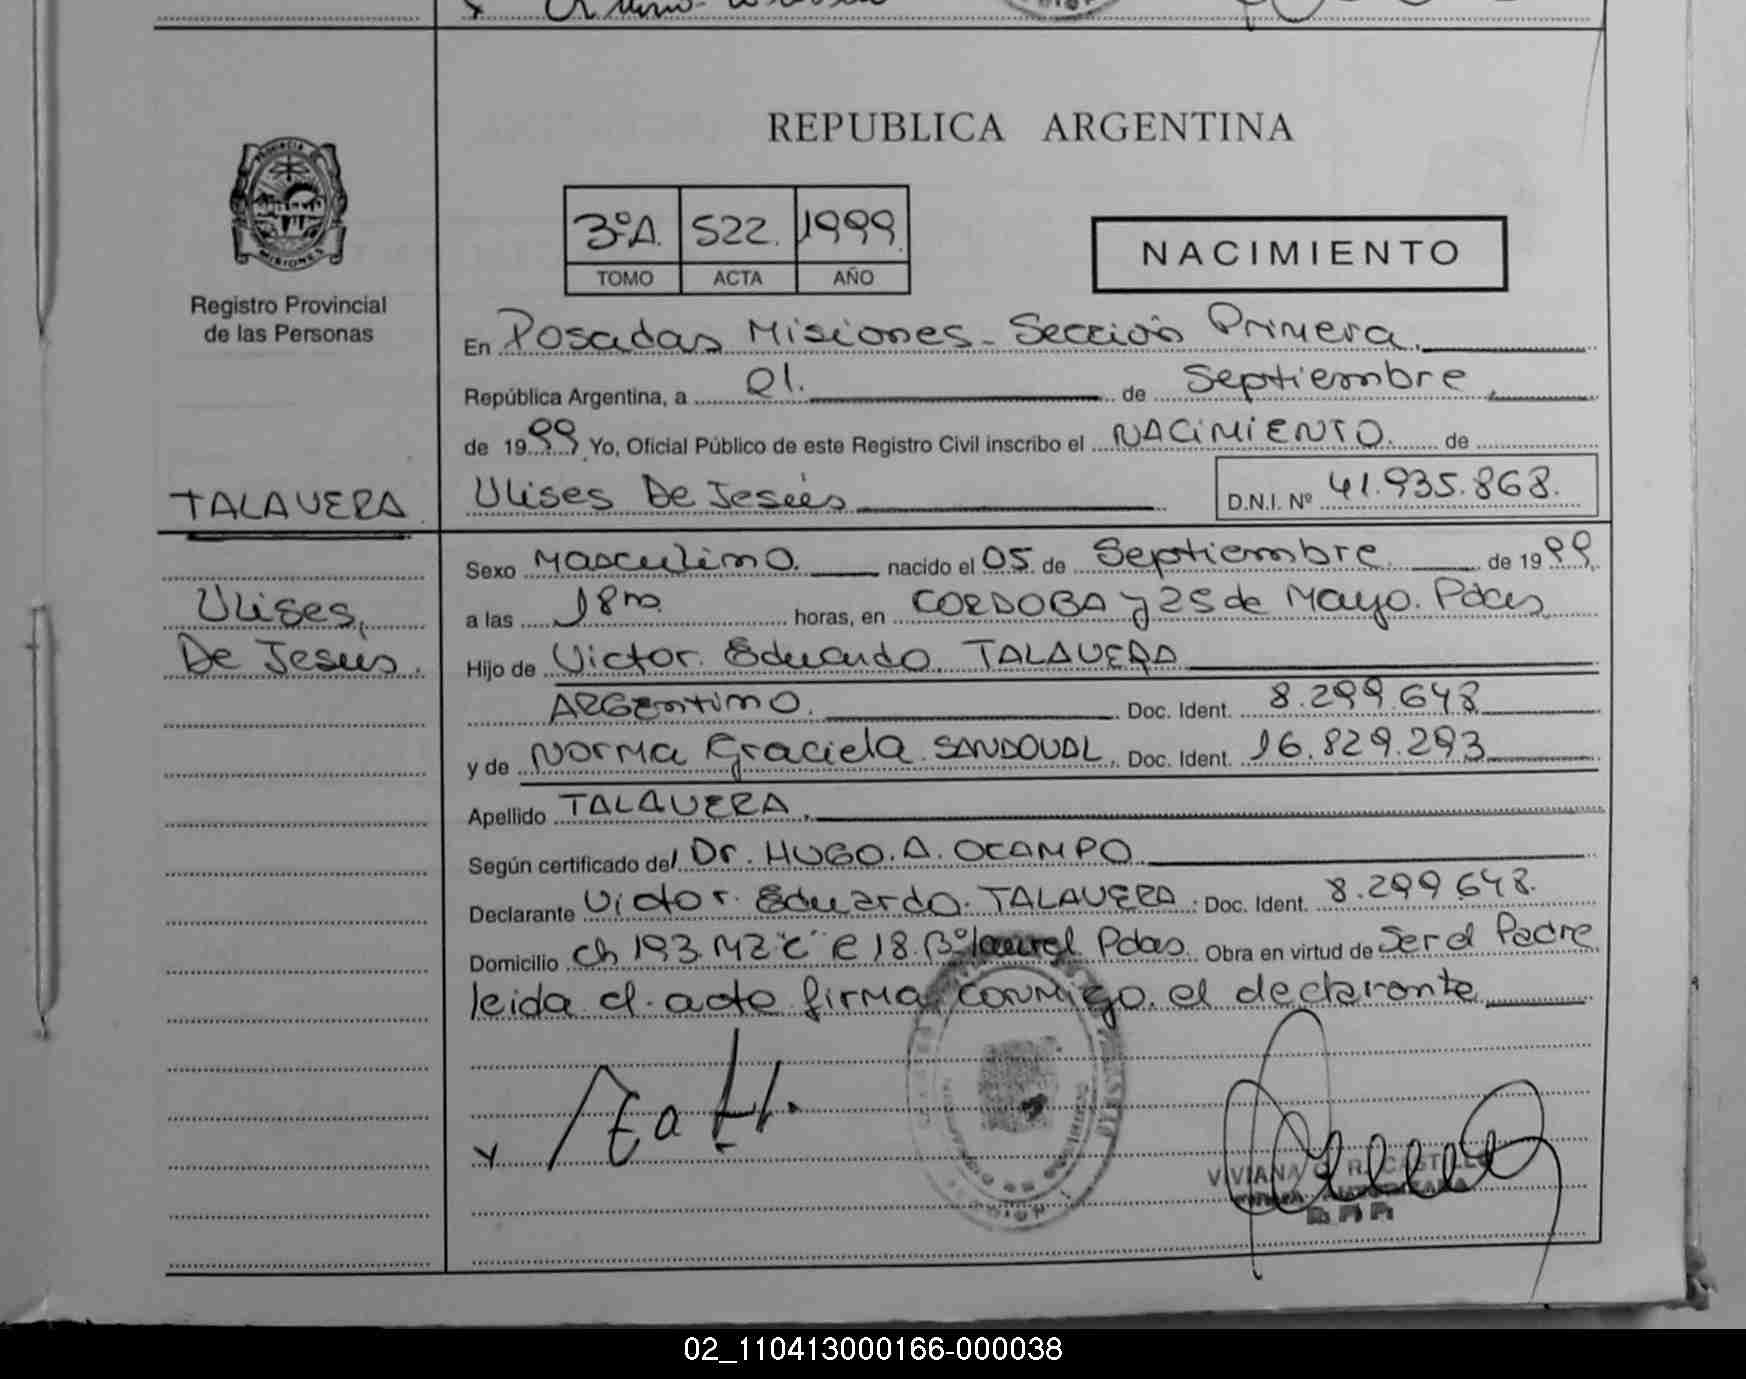 REPUBLICA ARGENTINA
3ºA. 522. 1999.
TOMO ACTA AÑO
NACIMIENTO
PROVINCIA DE
MISIONES
Registro Provincial
de las Personas
En Posadas Misiones - Sección Primera.
República Argentina, a 21. de Septiembre
de 1999 Yo, Oficial Público de este Registro Civil inscribo el NACIMIENTO. de
TALAVERA Ulises De Jesús D.N.I. Nº 41.935.868.
Sexo Masculino. nacido el 05. de Septiembre. de 1999.
Ulises, a las 18 horas, en CORDOBA y 25 de Mayo. Pdas
De Jesus. Hijo de Victor. Eduardo. TALAVERA
ARGENTINO. Doc. Ident. 8.299.648
y de NORMA Graciela. SANDOVAL. Doc. Ident. 16.829.293
Apellido TALAVERA.
Según certificado del Dr. HUGO. A. OCAMPO
Declarante Victor. Eduardo. TALAVERA. Doc. Ident. 8.299.648.
Domicilio ch 193. MZ "C" C 18. Bº laurel Pdas. Obra en virtud de Ser el Padre
leida el acto firma conmigo. el declarante
VIVIANA R. CASTILLO
02_110413000166-000038